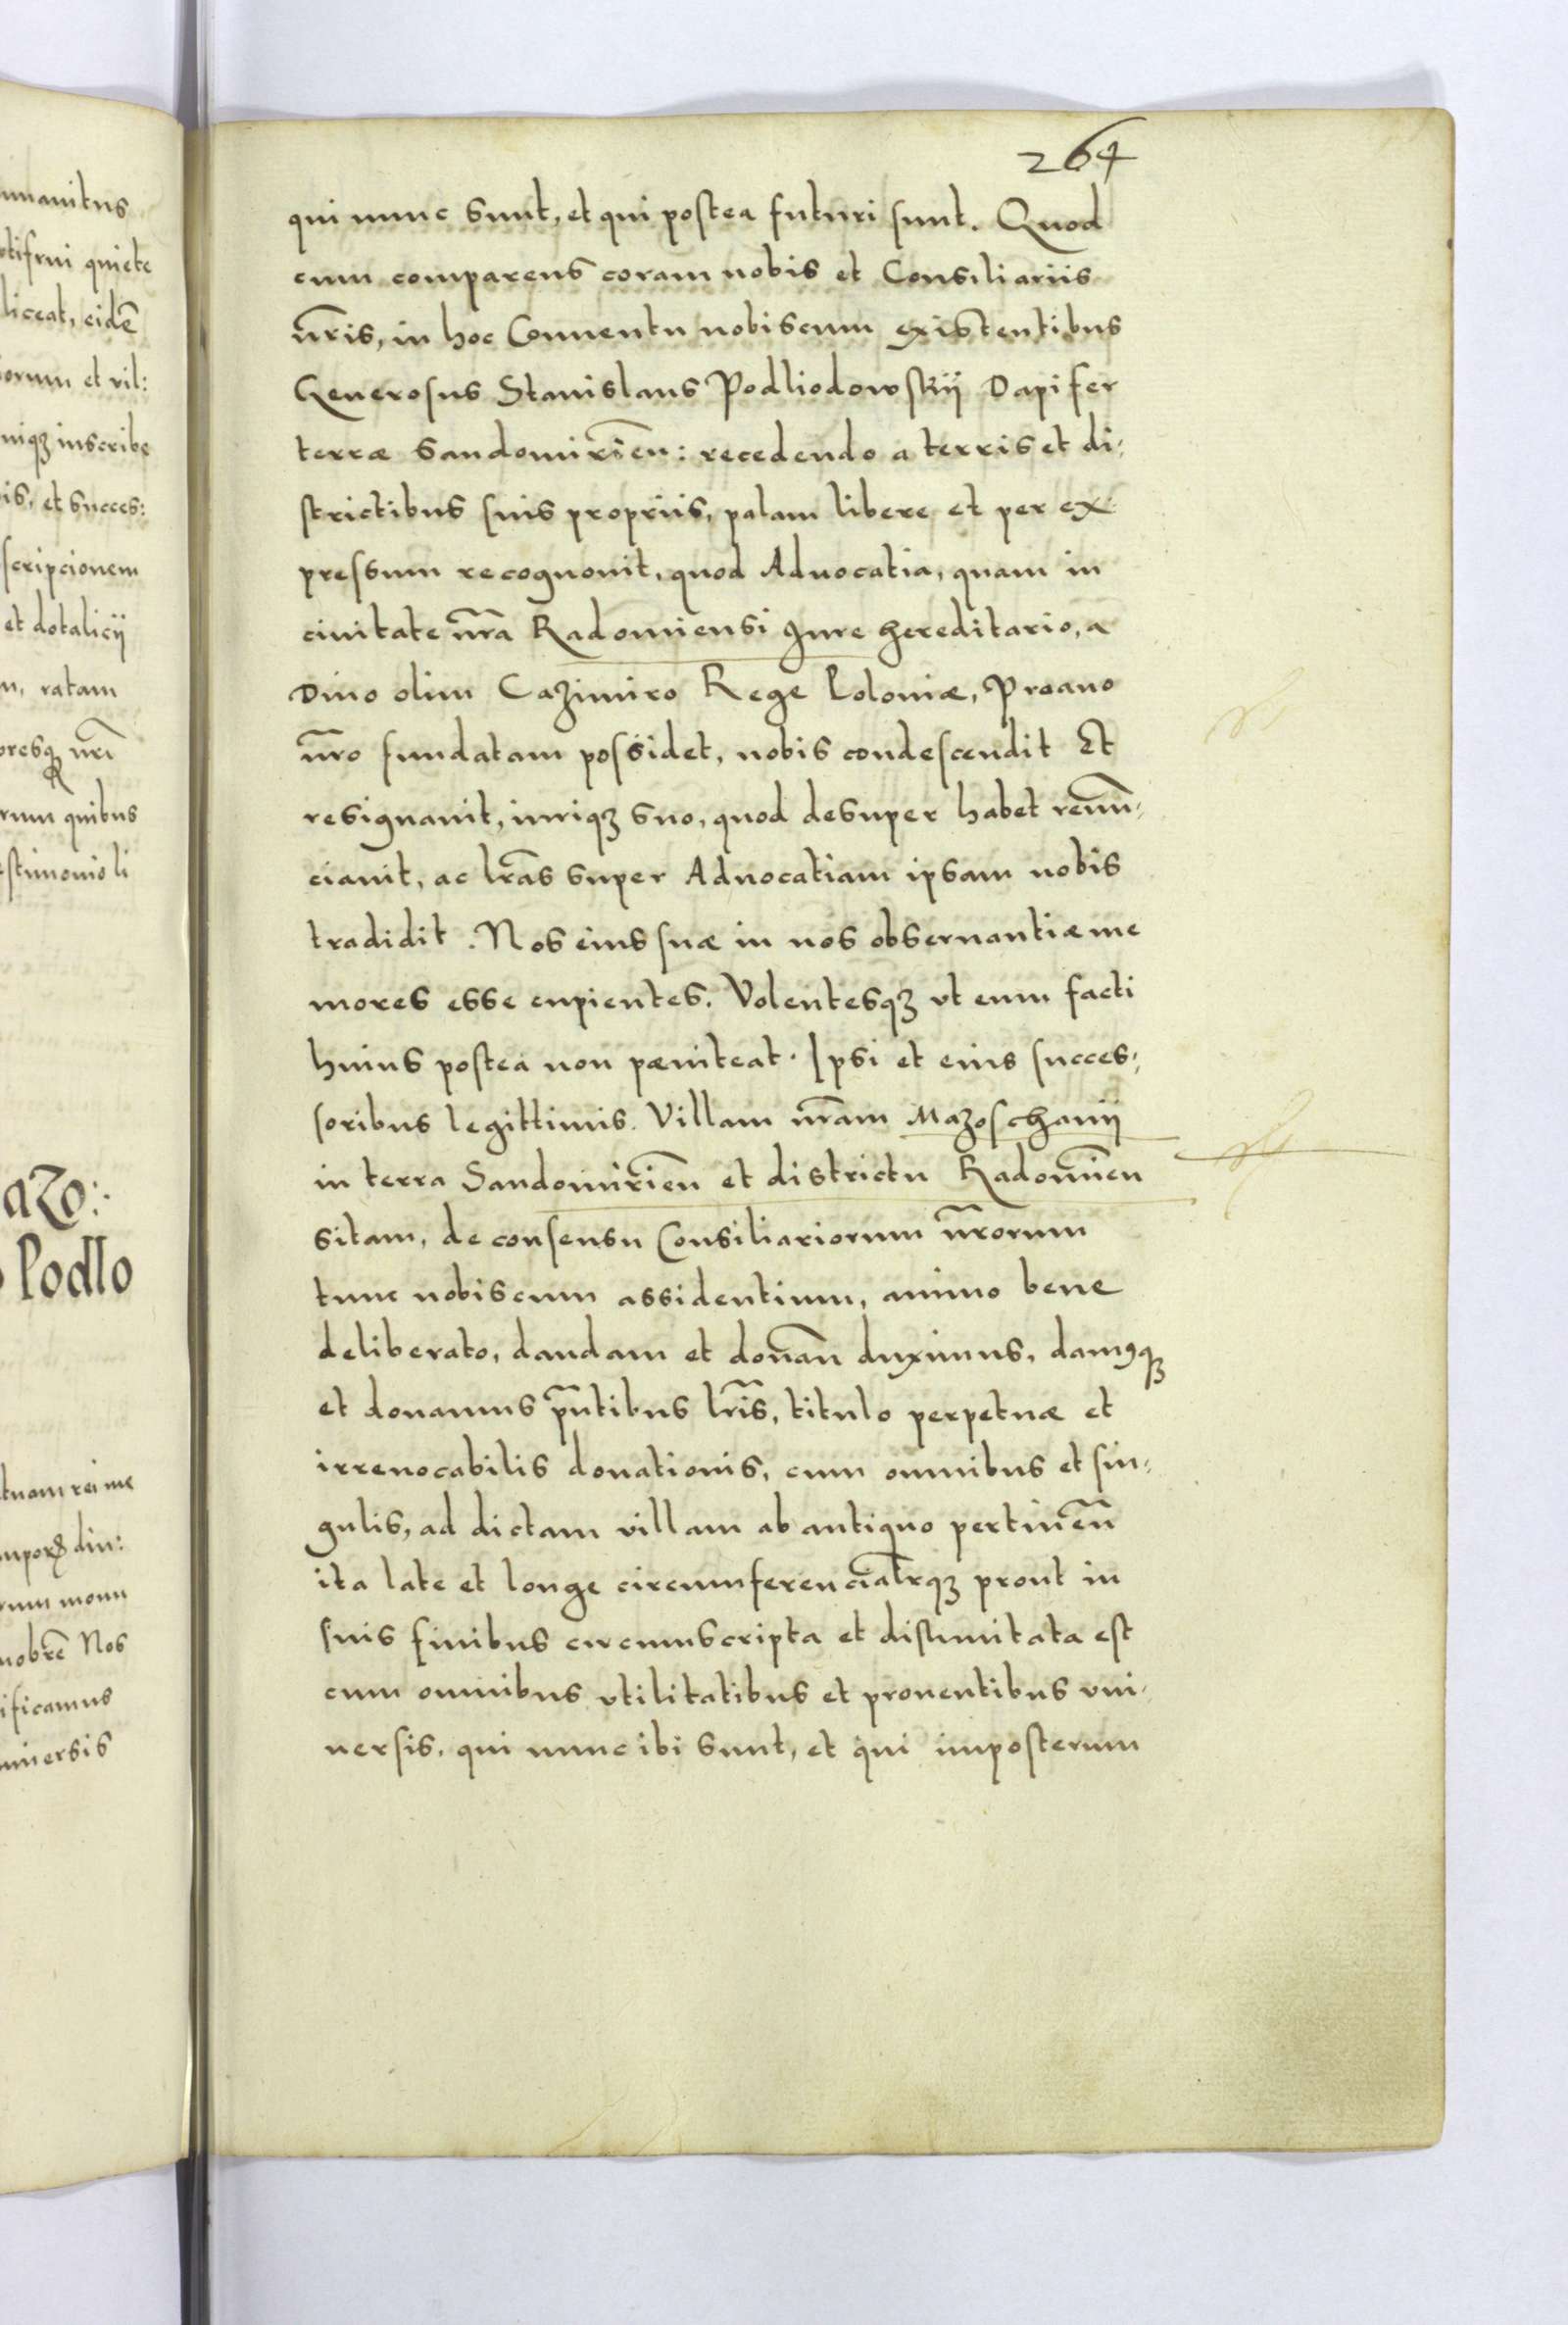 264
qui nunc sunt, et qui postea futuri sunt. Quod
cum comparens coram nobis et Consiliariis
nr̃is, in hoc Conuentu nobiscum existentibus
Generosus Stanislaus Podliodowskij Dapifer
terræ Sandomirień: recedendo a terris et di-
strictibus suis propriis, palam libere et per ex-
pressum recognouit, quod Aduocatia, quam in
ciuitate nr̃a Radomiensi Jure hereditario, a
Diuo olim Cazimiro Rege Poloniæ, Proauo
nr̃o fundatam possidet, nobis condescendit Et
resignauit, iuriqꝫ suo, quod desuper habet renun̄-
ciauit, ac lr̃as super Aduocatiam ipsam nobis
tradidit. Nos eius suæ in nos obseruantiæ me
mores esse cupientes. Volentesqꝫ vt eum facti
huius postea non pæniteat. Ipsi et eius succes-
soribus legittimis. Villam nr̃am Mazoschanij
in terra Sandomirień et districtu Radomień
sitam, de consensu Consiliariorum nr̃orum
tunc nobiscum assidentium, animo bene
deliberato, dandam et donan̄ duximus, damꝰqꝫ
et donamus pñtibus lr̃is, titulo perpetuæ et
irreuocabilis donationis, cum omnibus et sin-
gulis, ad dictam villam ab antiquo pertinen̄
ita late et longe circumferencialr̃qꝫ prout in
suis finibus circumscripta et dislimitata est
cum omnibus vtilitatibus et prouentibus vni-
uersis. qui nunc ibi sunt, et qui imposterum
liceat, eidē
et dotalicij
ratam
scripcionem
et succes:
quiete
inscribe
quibus
azo:
Podlo
din:
Nos